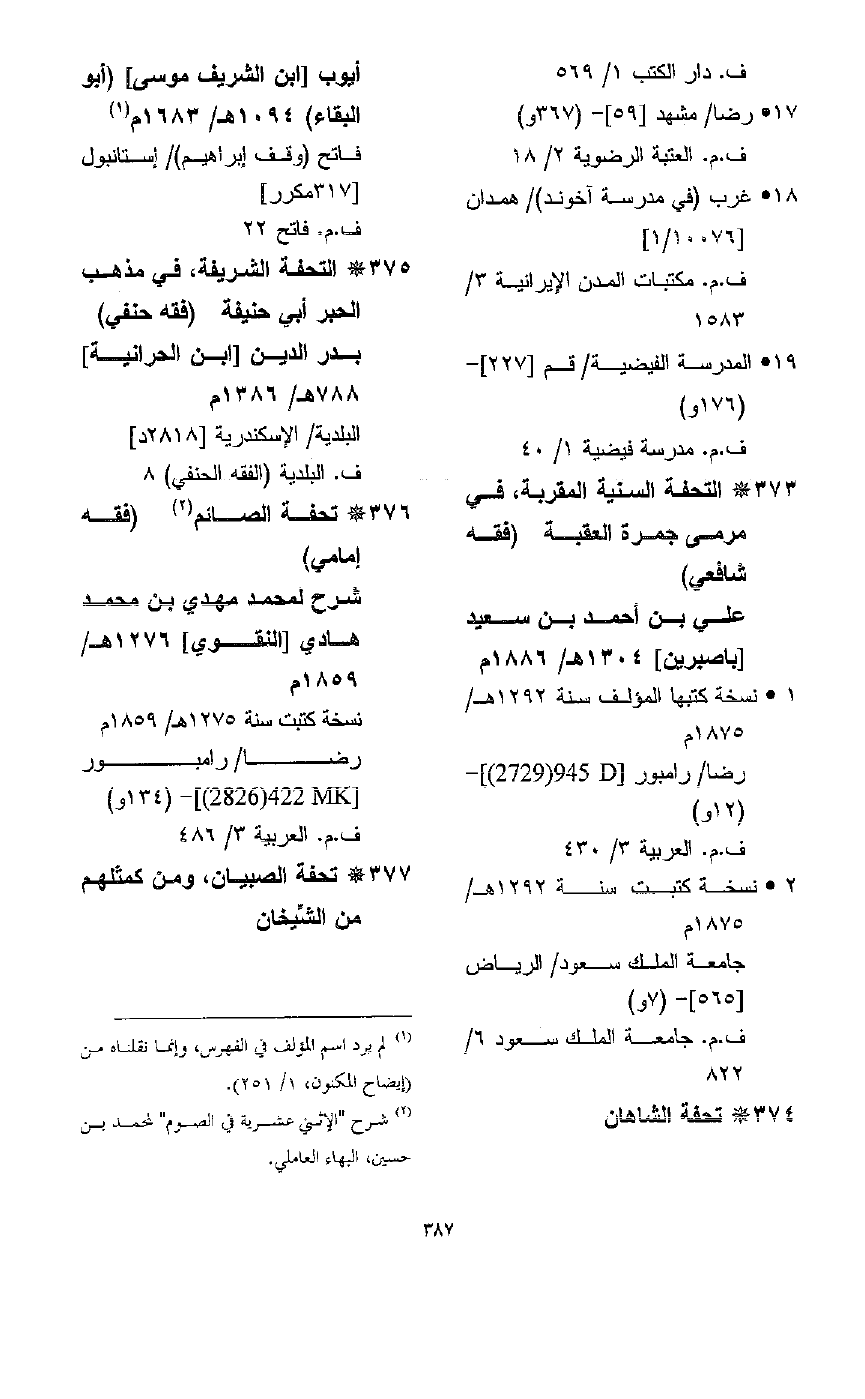 ف. دار الكتب ١/ ٥٦٩
١٧• رضا/ مشهد [٥٩]– (٣٦٧و)
ف.م. العتبة الرضوية ٢/ ١٨
١٨• غرب (في مدرسة آخوند)/ همدان
[١/١٠٠٧٦]
ف.م. مكتبات المدن الإيرانية ٣/
١٥٨٣
١٩• المدرسة الفيضية/ قم [٢٢٧]–
(١٧٦و)
ف.م. مدرسة فيضية ١/ ٤٠
٣٧٣❊ التحفة السنية المقربة، في
مرمى جمرة العقبة (فقه
شافعي)
علي بن أحمد بن سعيد
[باصبرين] ١٣٠٤هـ/ ١٨٨٦م
١ • نسخة كتبها المؤلف سنة ١٢٩٢هـ/
١٨٧٥م
رضا/ رامبور [945 D(2729)]–
(١٢و)
ف.م. العربية ٣/ ٤٣٠
٢ • نسخة كتبت سنة ١٢٩٢هـ/
١٨٧٥م
جامعة الملك سعود/ الرياض
[٥٦٥]– (٧و)
ف.م. جامعة الملك سعود ٦/
٨٢٢
٣٧٤❊ تحفة الشاهان
أيوب [ابن الشريف موسى] (أبو
البقاء) ١٠٩٤هـ/ ١٦٨٣م(١)
فاتح (وقف إبراهيم)/ إستانبول
[٣١٧مكرر]
ف.م. فاتح ٢٢
٣٧٥❊ التحفة الشريفة، في مذهب
الحبر أبي حنيفة (فقه حنفي)
بدر الدين [ابن الحرانية]
٧٨٨هـ/ ١٣٨٦م
البلدية/ الإسكندرية [٢٨١٨د]
ف. البلدية (الفقه الحنفي) ٨
٣٧٦❊ تحفة الصائم(٢) (فقه
إمامي)
شرح لمحمد مهدي بن محمد
هادي [النقوي] ١٢٧٦هـ/
١٨٥٩م
نسخة كتبت سنة ١٢٧٥هـ/ ١٨٥٩م
رضا/ رامبور
[422 MK(2826)]– (١٣٤و)
ف.م. العربية ٣/ ٤٨٦
٣٧٧❊ تحفة الصبيان، ومن كمثلهم
من الشِّيخان
(١) لم يرد اسم المؤلف في الفهرس، وإنما نقلناه من
(إيضاح المكنون، ١/ ٢٥١).
(٢) شرح "الإثني عشرية في الصوم" لمحمد بن
حسين، البهاء العاملي.
٣٨٧